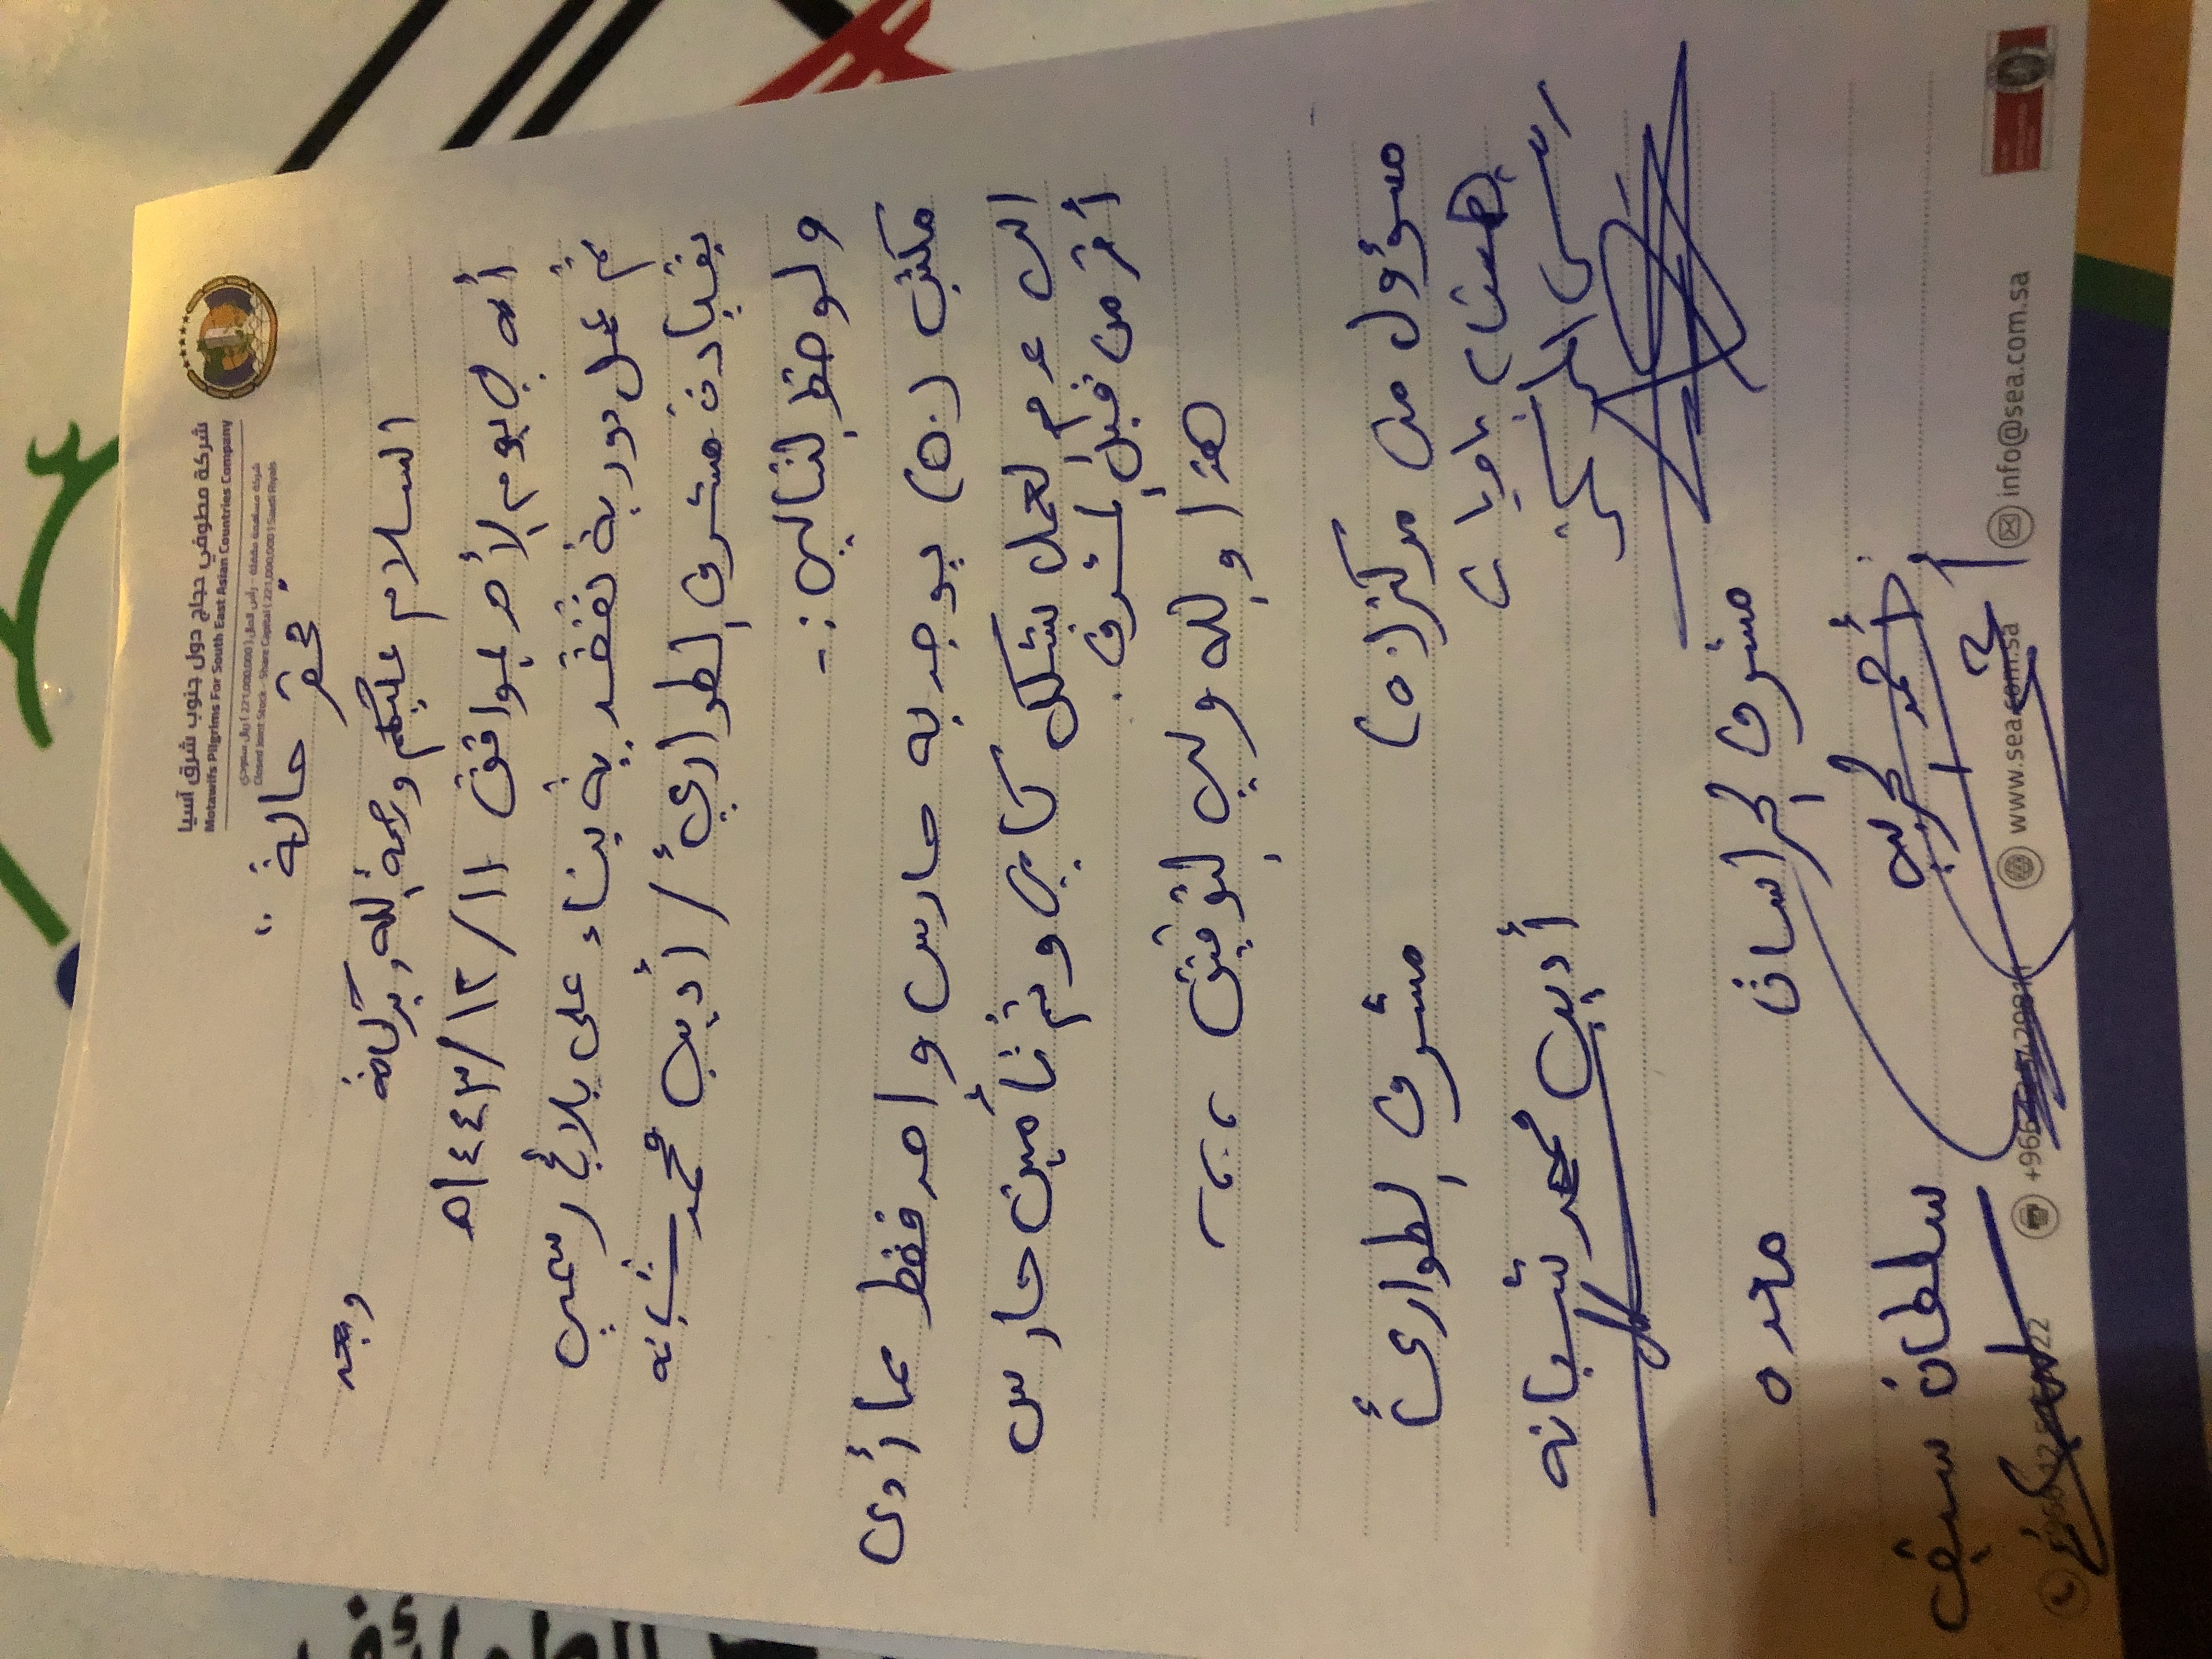 شركة مطوفي حجاج دول جنوب شرق آسيا
Motawifs Pilgrims For South East Asian Countries Company
شركة مساهمة مقفلة - رأس المال ( 221,000,000 ) ريال سعودي
Closed Joint Stock - Share Capital ( 221,000,000 ) Saudi Riyals
" محضر حالة "
السلام عليكم ورحمة الله وبركاته وبعد
أنه في يوم الأحد الموافق ١١/١٢/١٤٤٣هـ
تم عمل دورية تفقدية بناء على بلاغ رسمي
بقيادة مشرف الطوارئ / أديب محمد شبانه
ولوحظ التالي :-
مكتب (٥٠) يوجد به حارس واحد فقط مما أدى
الى عدم العمل بشكل كافي وتم تأمين حارس
أخر من قبل المشرف .
هذا والله ولي التوفيق ،،،
مسؤول من مركز (٥٠) مشرف الطوارئ
هشام
رئيس المركز أديب محمد شبانه
مشرف الحراسات معده
أحمد الحربي سلطان سيف
أحمد
+966 www.sea.com.sa info@sea.com.sa